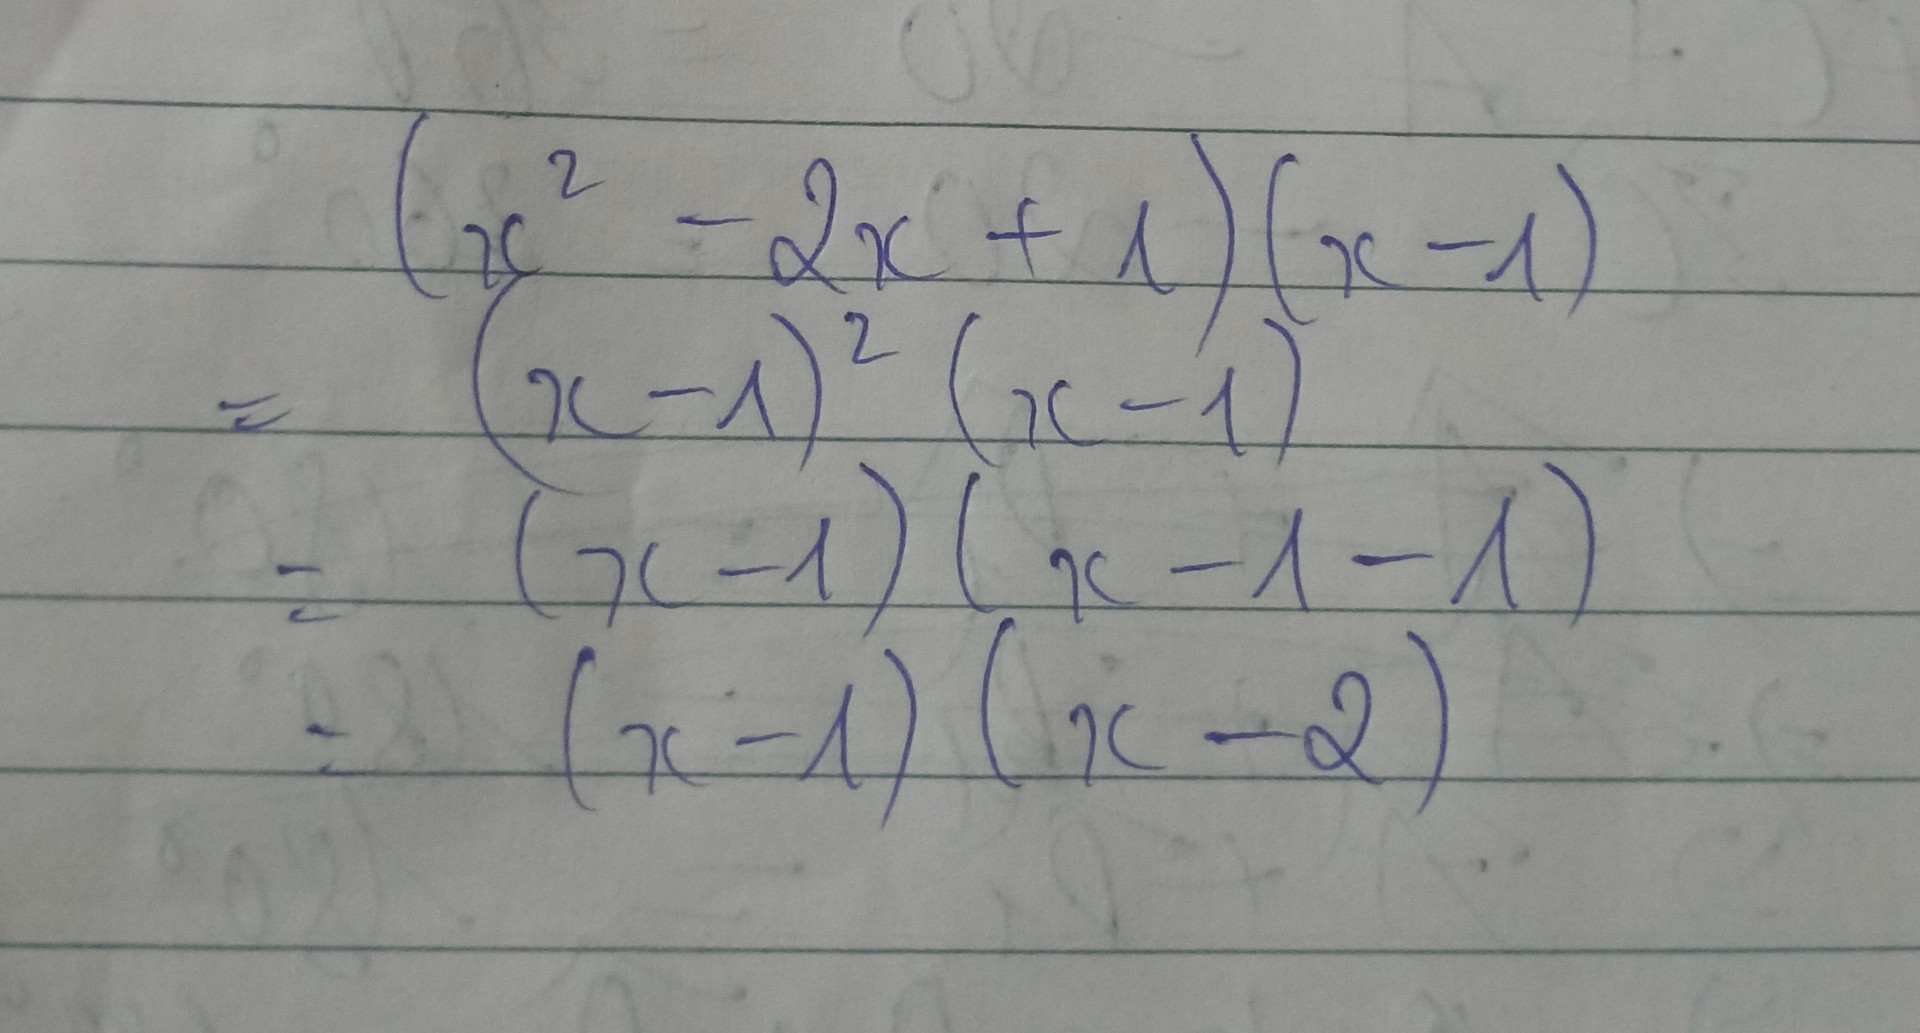 (x² - 2x + 1)(x - 1)
= (x - 1)² (x - 1)
= (x - 1)(x - 1 - 1)
= (x - 1)(x - 2)